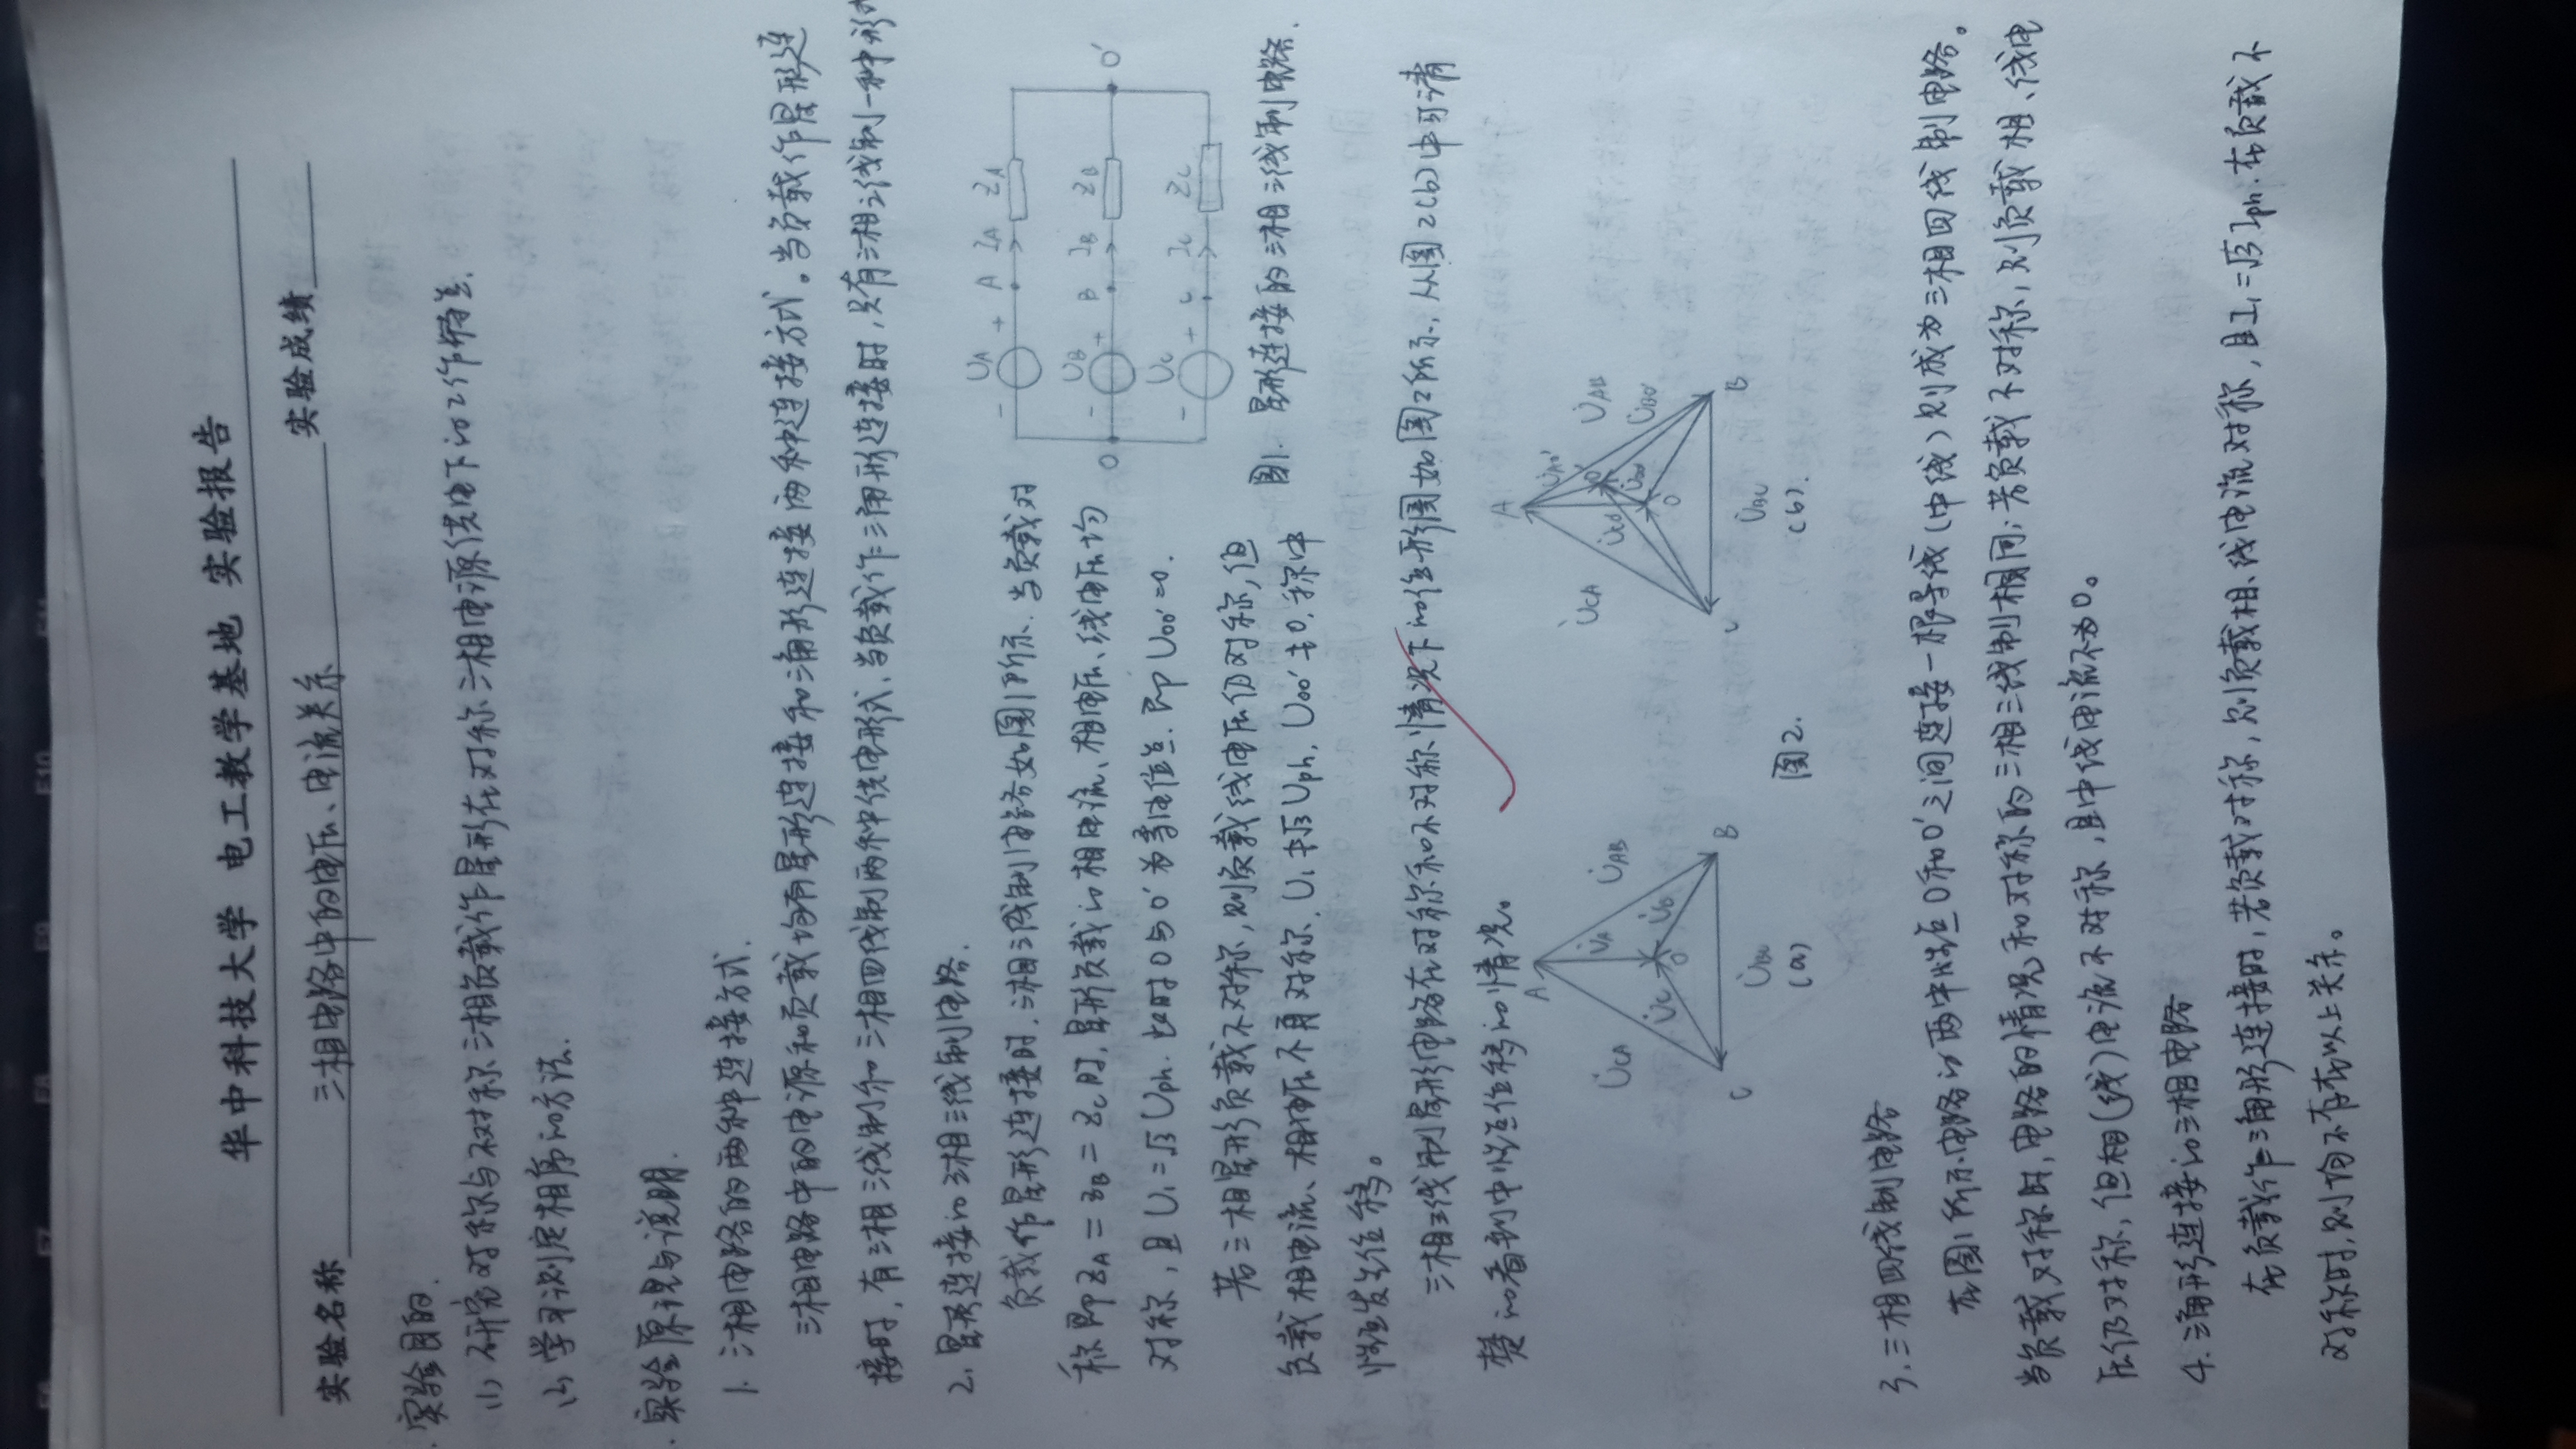 F6 F7 F8 F9 F10 F11
华中科技大学 电工教学基地 实验报告
实验名称 三相电路中的电压、电流关系 实验成绩
实验目的.
(1) 研究对称与不对称三相负载作星形在对称三相电源供电下的工作特点.
(2) 学习测定相序的方法.
实验原理与说明.
1. 三相电路的两种连接方式.
三相电路中的电源和负载均有星形连接和三角形连接两种连接方式。当负载作星形连
接时,有三相三线制和三相四线制两种供电形式,当负载作三角形连接时,只有三相三线制一种形式
2. 星形连接的三相三线制电路.
负载作星形连接时.三相三线制电路如图1所示.当负载对
称即ZA = ZB = ZC时,星形负载的相电流、相电压、线电压均
对称,且 U₁=√3 Uph. 此时O与O'为等电位点.即 Uoo'=0.
若三相星形负载不对称,则负载线电压仍对称,但
负载相电流、相电压不再对称. U₁≠√3 Uph, Uoo'≠0,称中
性点发生位移。
UA
- + A IA ZA
UB
- + B IB ZB
O O'
UC
- + C IC ZC
图1. 星形连接的三相三线制电路.
三相三线制星形电路在对称和不对称情况下的位形图如图2所示,从图2(b)中可清
楚的看到中性点位移的情况。
A
U̇CA U̇A U̇AB
U̇C U̇B
O
C B
U̇BC
(a)
图2.
A
U̇AO'
U̇CA O' U̇AB
U̇CO' U̇OO' U̇BO'
O
C B
U̇BC
(b).
3. 三相四线制电路
在图1所示电路的两中性点O和O'之间连接一根导线(中线)则成为三相四线制电路。
当负载对称时,电路的情况和对称的三相三线制相同;若负载不对称,则负载相、线电
压仍对称,但相(线)电流不对称,且中线电流不为0。
4. 三角形连接的三相电路
在负载作三角形连接时,若负载对称,则负载相、线电流对称,且I₁=√3 Iph.在负载不
对称时,则均不存在以上关系。